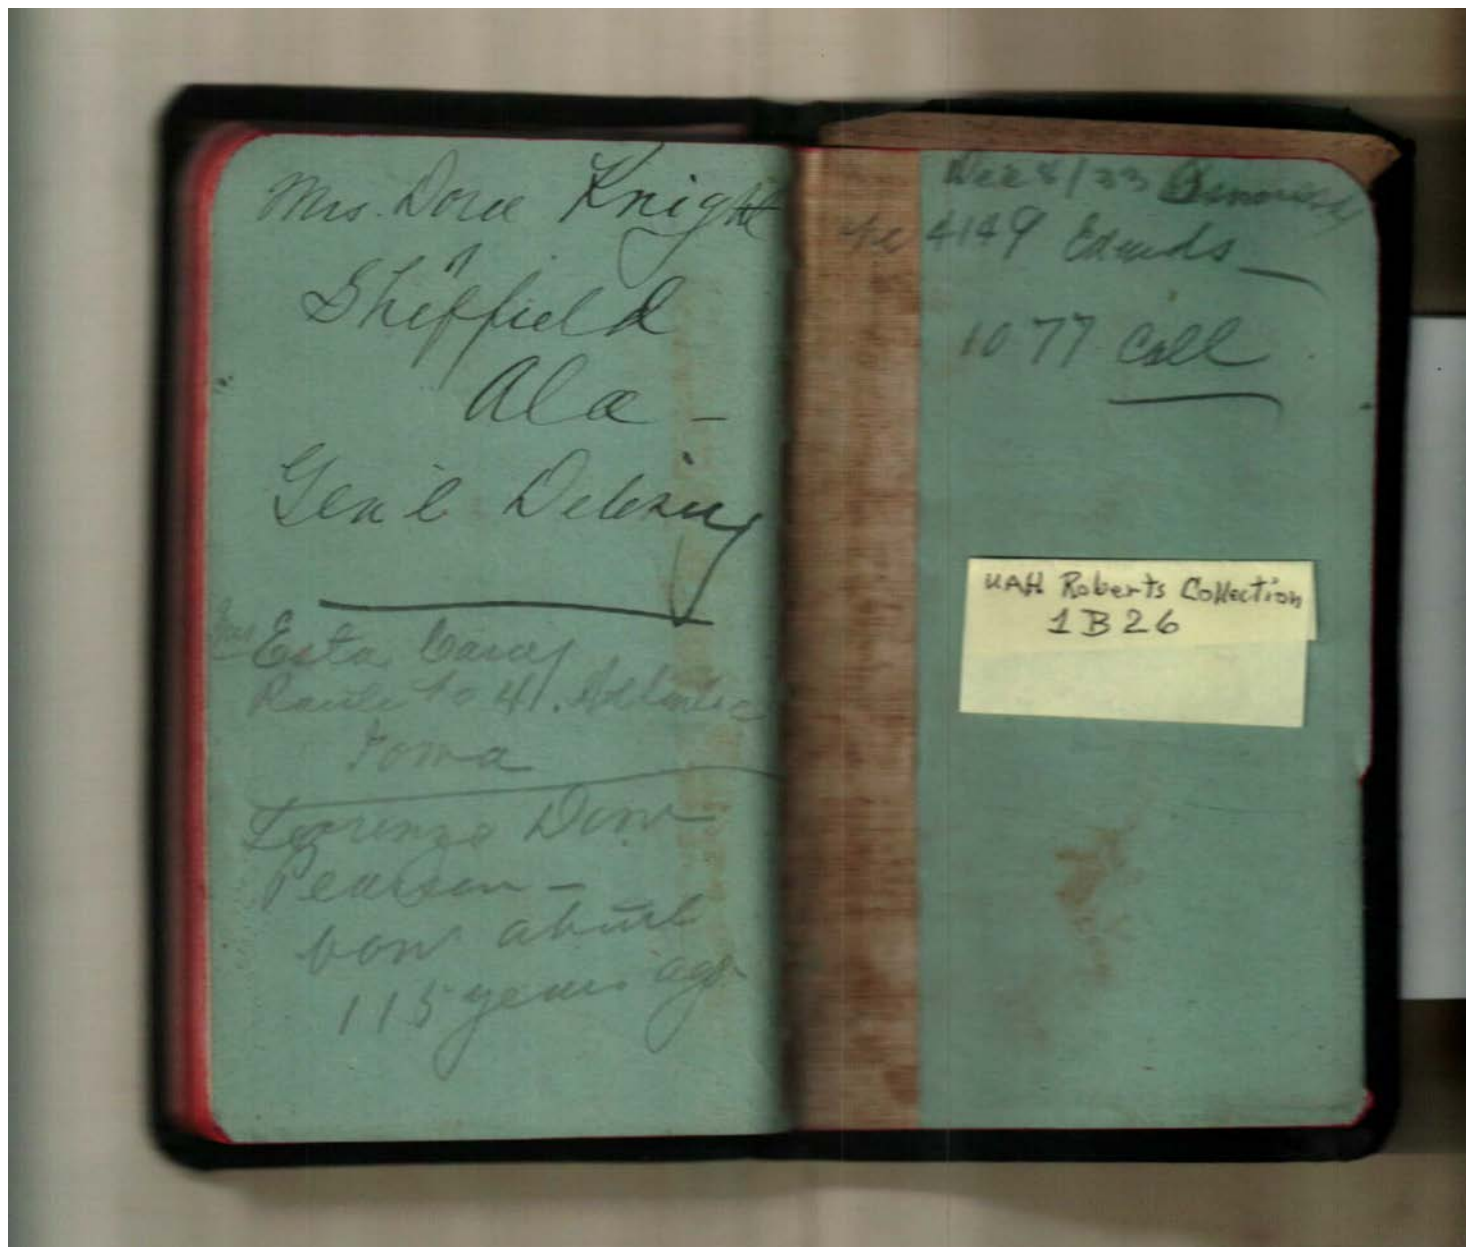 Mrs. Dora Knight
Sheffield
Ala -
Gen'l Delivery
Esta
Route No 4. Atlantic
Iowa
Lorenzo Dow
Pearson -
born about
115 years ago
Dec 8/33
4149 Edmunds
1077 Call
UAH Roberts Collection
1B26